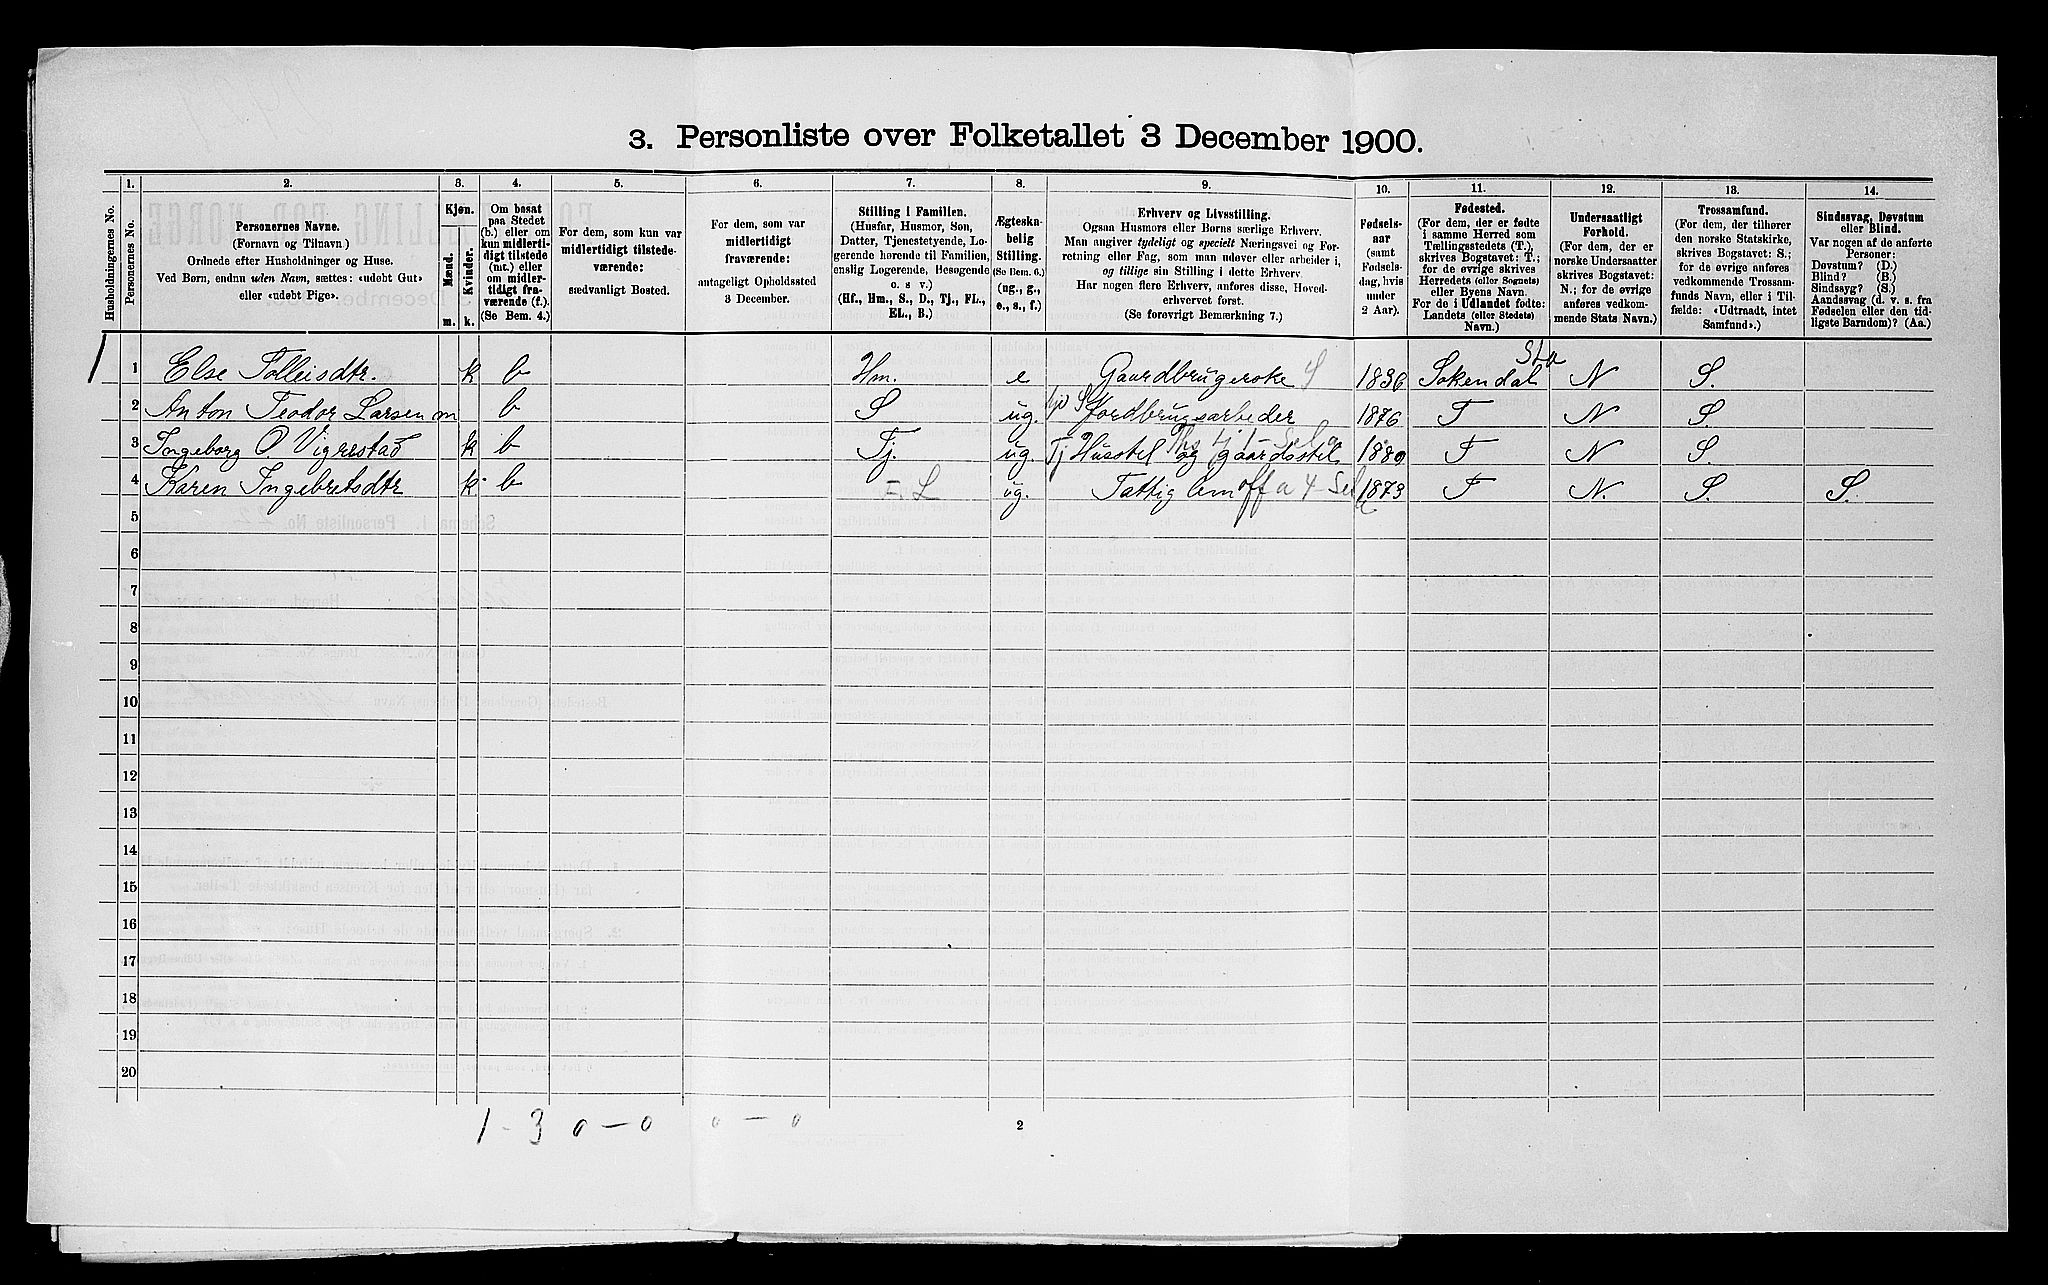 3. Personliste over Folketallet 3 December 1900.
1. 2. 3. 4. 5. 6. 7. 8. 9. 10. 11. 12. 13. 14.
Husholdningernes No.
Personernes No.
Personernes Navne.
(Fornavn og Tilnavn)
Ordnede efter Husholdninger og Huse.
Ved Børn, endnu uden Navn, sættes: «udøbt Gut»
eller «udøbt Pige».
Kjøn.
Mænd.
Kvinder.
m. k.
Om bosat
paa Stedet
(b.) eller om
kun midlerti-
digt tilstede
(mt.) eller
om midler-
tidigt fra-
værende (f.).
(Se Bem. 4.)
For dem, som kun var
midlertidigt tilstede-
værende:
sædvanligt Bosted.
For dem, som var
midlertidigt
fraværende:
antageligt Opholdssted
3 December.
Stilling i Familien.
(Husfar, Husmor, Søn,
Datter, Tjenestetyende, Lo-
gerende hørende til Familien,
enslig Logerende, Besøgende
o. s v.)
(Hf., Hm., S., D., Tj., FL.,
EL., B.)
Ægteska-
belig
Stilling.
(Se Bem. 6.)
(ug., g.,
e., s., f.)
Erhverv og Livsstilling.
Ogsaa Husmors eller Børns særlige Erhverv.
Man angiver tydeligt og specielt Næringsvei og For-
retning eller Fag, som man udøver eller arbeider i,
og tillige sin Stilling i dette Erhverv.
Har nogen flere Erhverv, anføres disse, Hoved-
erhvervet først.
(Se forøvrigt Bemærkning 7.)
Fødsels-
aar
(samt
Fødsels-
dag, hvis
under
2 Aar).
Fødested.
(For dem, der er fødte
i samme Herred som
Tællingsstedets (T.),
skrives Bogstavet: T.;
for de øvrige skrives
Herredets (eller Sognets)
eller Byens Navn.
For de i Udlandet fødte:
Landets (eller Stedets)
Navn.)
Undersaatligt
Forhold.
(For de øvrige
norske Undersaatter
skrives Bogstavet:
N.; for de øvrige
anføres vedkom-
mende Stats Navn.)
Trossamfund.
(For dem, der tilhører
den norske Statskirke,
skrives Bogstavet: S.;
for de øvrige anføres
vedkommende Trossam-
funds Navn, eller i Til-
fælde: «Udtraadt, intet
Samfund».)
Sindssvag, Døvstum
eller Blind.
Var nogen af de anførte
Personer:
Døvstum? (D.)
Blind? (B.)
Sindssyg? (S.)
Aandssvag (d. v. s. fra
Fødselen eller den tid-
ligste Barndom)? (Aa.)
1 1 Else Tolleisdtr. k b Hm. e Gaardbrugerske S 1836 Sokendal Sta N S.
2 Anton Teodor Larsen m b S ug. Jordbrugsarbeder 1876 T N S.
3 Ingeborg O. Vigrestad k b Tj. ug. Tj Husstel og gaardsstel 1880 T N S.
4 Karen Ingebretsdtr k. b L ug. Fattiglem off a 4 1873 T N. S. S.
5
6
7
8
9
10
11
12
13
14
15
16
17
18
19
20
1 - 3 0 - 0 0 - 0
2